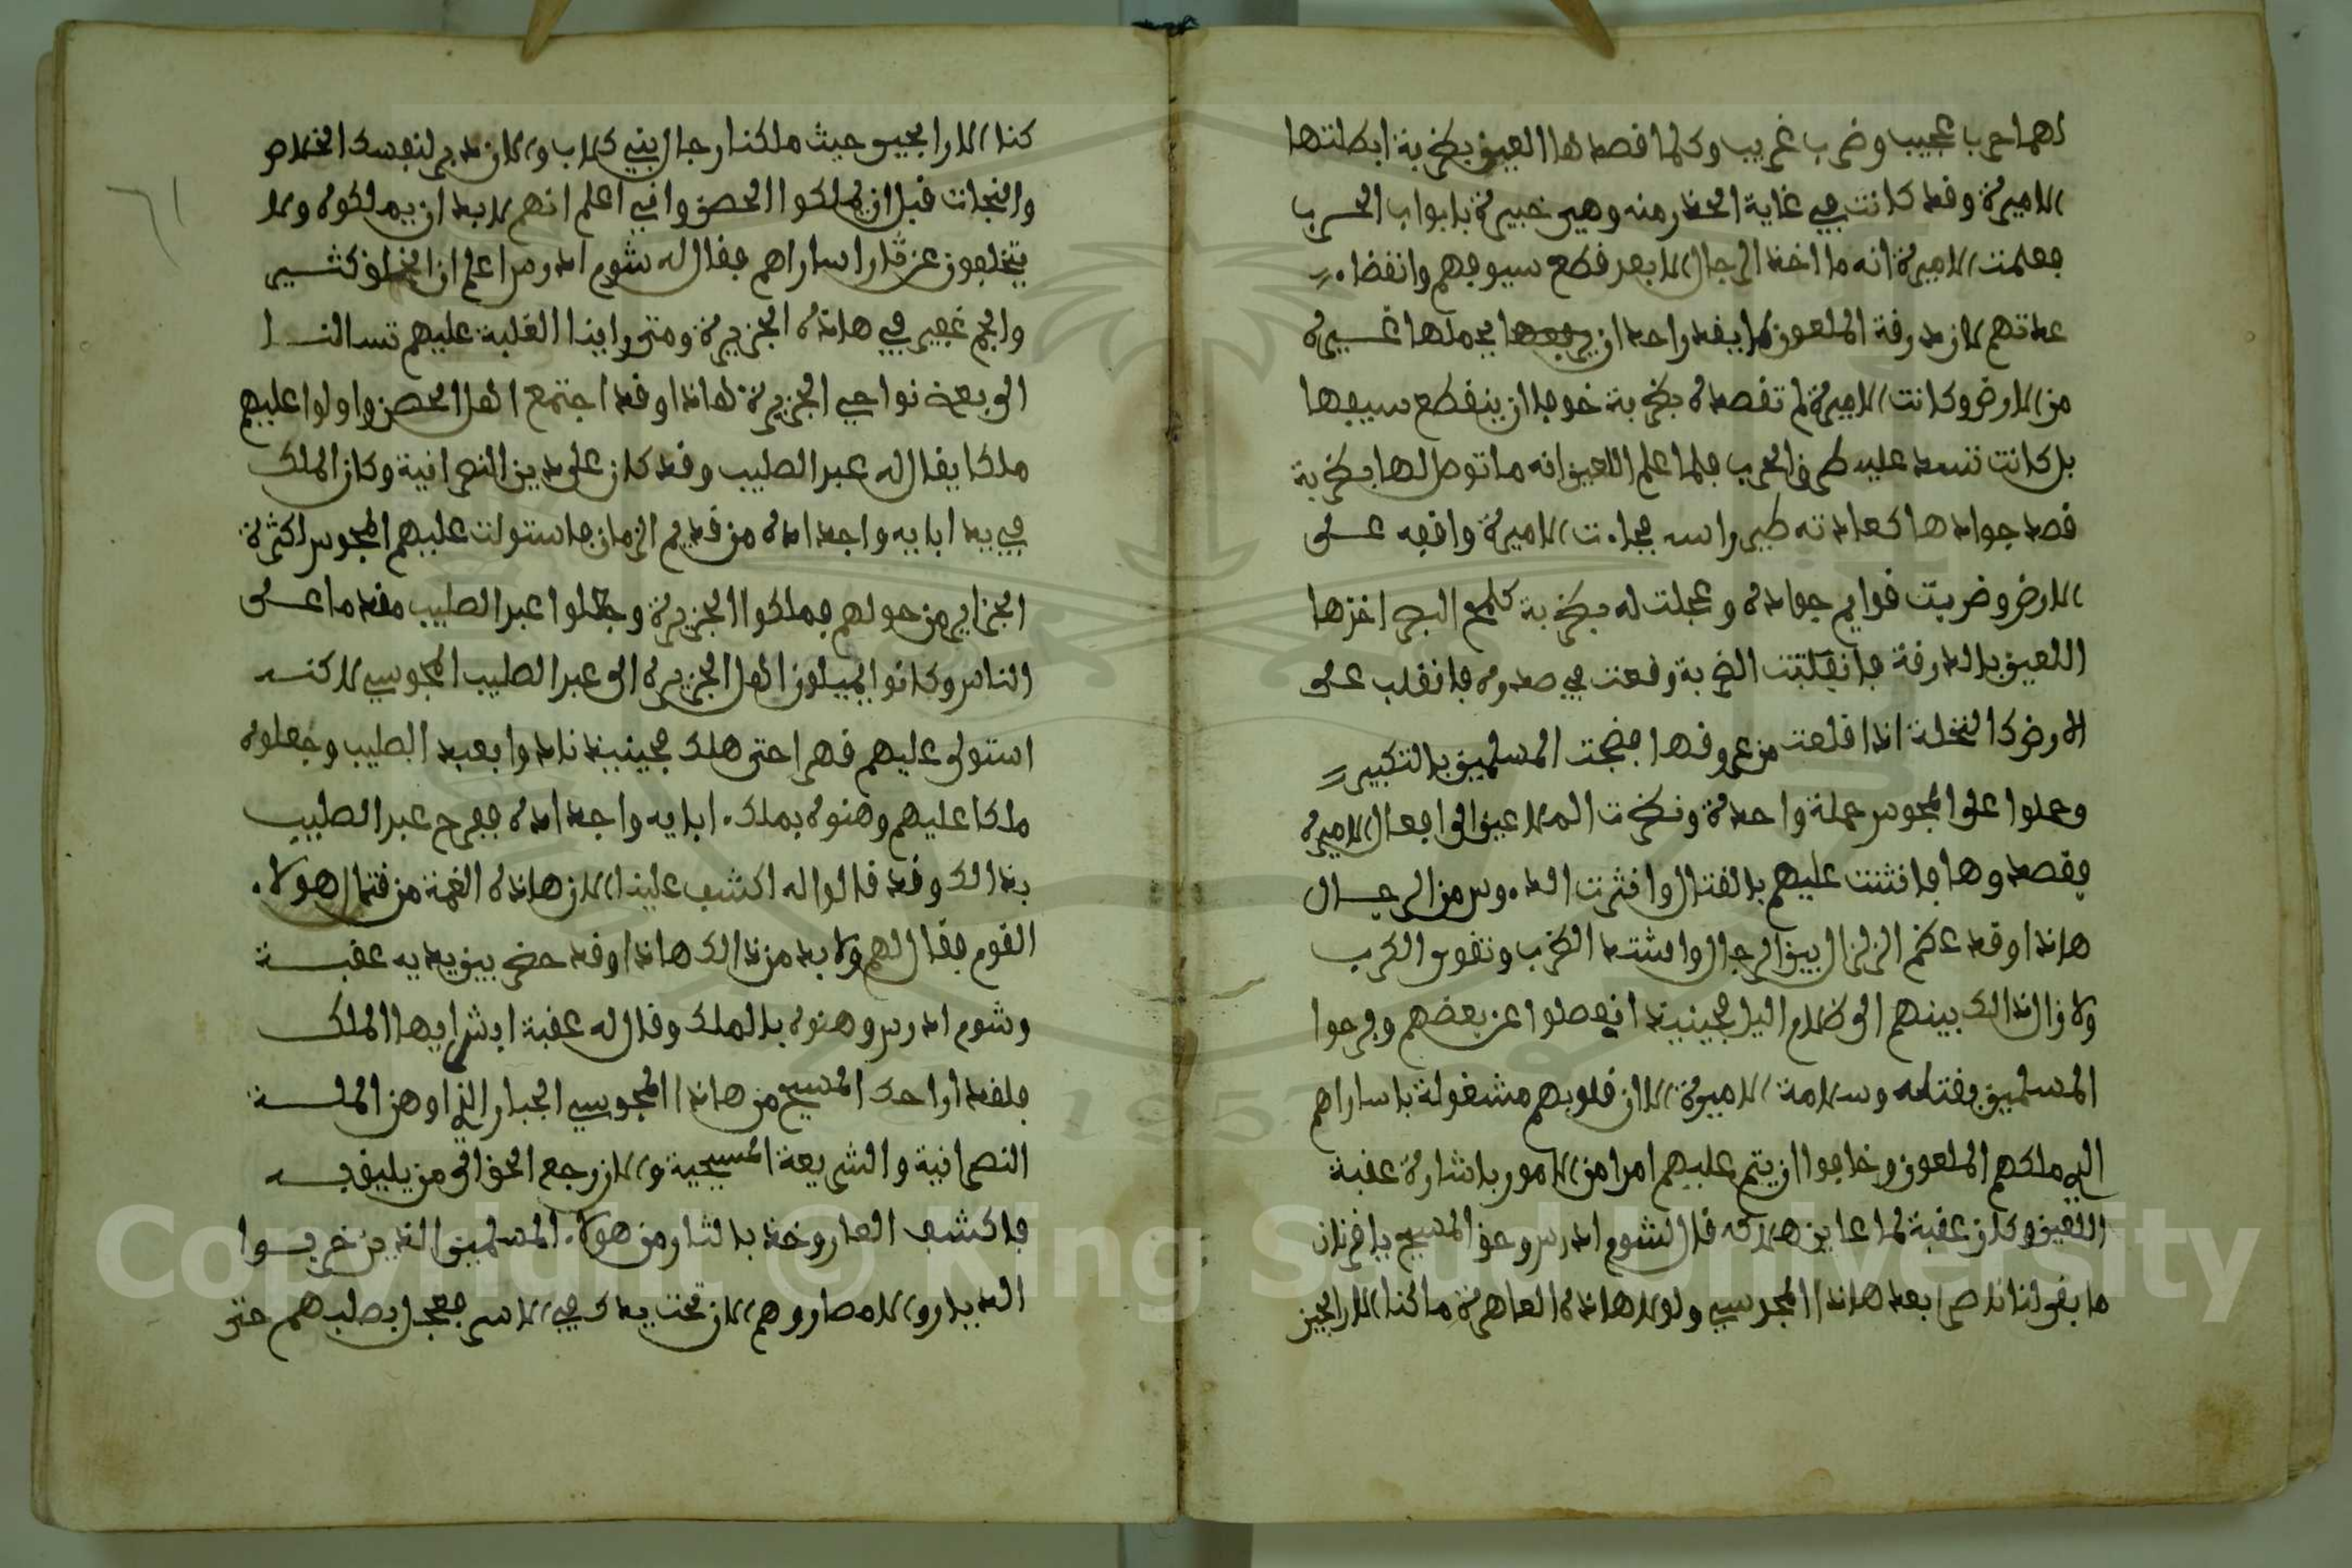 لهما حرب عجيب وضرب غريب وكلما قصدها العين بضربة ابطلتها
الاميرة وقد كانت في غاية الحذر منه وهي خبيرة بابواب الحرب
فعلمت الاميرة انه ما اخذ الرجال الا بعد قطع سيوفهم وانقضاء
عدتهم لان درقة الملعون لا يقدر احد ان يرفعها يحملها غيره
من الارض وكانت الاميرة لم تقصده بضربة خوفا ان ينقطع سيفها
بل كانت تسد عليه طرق الحرب فلما علم اللعين انه ما توصل لها بضربة
قصد جوادها كعادته طير راسه فجاءت الاميرة واقفه على
الارض وضربت قوايم جواده وعجلت له بضربة كلمح البصر اخذها
اللعين بالدرقة فانقلبت الضربة وقعت في صدره فانقلب على
الارض كالنخلة اذا قلعت من عروقها فضجت المسلمين بالتكبير
وحملوا على المجوس حملة واحدة ونظرت الملاعين الى افعال الاميرة
فقصدوها فانثنت عليهم بالقتال وانثرت الروس من الرجال
هاذا وقد عظم الزلزال بين الرجال واشتد الضرب وتقوى الكرب
ولا زال ذالك بينهم الى ظلام اليل فحينيذ انفصلوا عن بعضهم وفرحوا
المسلمين بقتله وسلامة الاميرة الا ان قلوبهم مشغولة باساراهم
الى ملكهم الملعون وخافوا ان يتم عليهم امرا من الامور باشارة عقبة
اللعين وكان عقبة لما عاين هلاكه قال لشوم ادرس وحق المسيح يا قرنان
ما بقى لنا ناصر بعد هاذا المجوسي ولولا هاذه العاهرة ما كنا الا رابحين
كنا الا رابحين حيث ملكنا رجال بني كلاب والان دبر لنفسك الخلاص
والنجات قبل ان يملكوا الحصن واني اعلم انهم لا بد ان يملكوه ولا
يتخلفون عن ثار اساراهم فقال له شوم ادرس اعلم ان الخلق كثير
والجم غفير في هاذه الجزيرة ومتى راينا الغلبة عليهم تسالنا
الى بعض نواحي الجزيرة هاذا وقد اجتمع اهل الحصن واولوا عليهم
ملكا يقال له عبر الصليب وقد كان على دين النصرانية وكان الملك
في يد ابايه واجداده من قديم الزمان فاستولت عليهم المجوس اكثرة
الجزاير من حولهم فملكوا الجزيرة وجعلوا عبر الصليب مقدما على
الناس وكانوا يميلون اهل الجزيرة الى عبر الصليب المجوسي لاكنه
استولى عليهم قهرا حتى هلك فحينيذ نادوا بعبد الصليب وجعلوه
ملكا عليهم وهنوه بملك ابايه واجداده ففرح عبر الصليب
بذالك وقد قالوا له اكشف علينا الان هاذه الغمة من قتال هولاء
القوم فقال لهم ولا بد من ذالك هاذا وقد حضر بين يديه عقبة
وشوم ادرس وهنوه بالملك وقال له عقبة ابشر ايها الملك
فلقد اراحك المسيح من هاذا المجوسي الجبار الذي اوهن الملة
النصرانية والشريعة المسيحية والان رجع الحق الى من يليق به
فاكشف العار وخذ بالثار من هولاء المسلمين الذين خربوا
الديار والامصار وهم الان تحت يدك في الاسر فعجل بصلبهم حتى